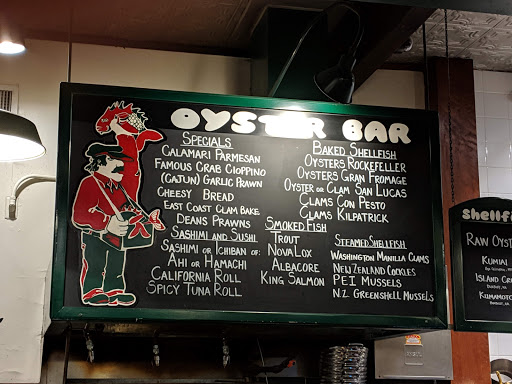 OYSTER BAR
SPECIALS
CALAMARI PARMESAN
FAMOUS CRAB CIOPPINO
(CAJUN) GARLIC PRAWN
CHEESY BREAD
EAST COAST CLAM BAKE
DEANS PRAWNS
SASHIMI AND SUSHI
SASHIMI OR ICHIBAN OF:
AHI OR HAMACHI
CALIFORNIA ROLL
SPICY TUNA ROLL
SMOKED FISH
TROUT
NOVA LOX
ALBACORE
KING SALMON
BAKED SHELLFISH
OYSTERS ROCKEFELLER
OYSTERS GRAN FROMAGE
OYSTER OR CLAM SAN LUCAS
CLAMS CON PESTO
CLAMS KILPATRICK
STEAMED SHELLFISH
WASHINGTON MANILLA CLAMS
NEW ZEALAND COCKLES
PEI MUSSELS
N.Z. GREENSHELL MUSSELS
Shellfi
RAW OYST
KUMIAI
ISLAND CR
KUMAMOTO